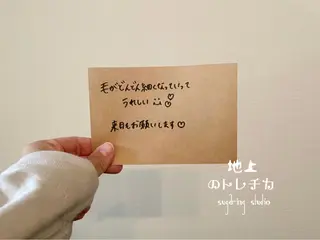 毛がどんどん細くなっていって
うれしい
来月もお願いします♡
地上
のトレチカ
studio